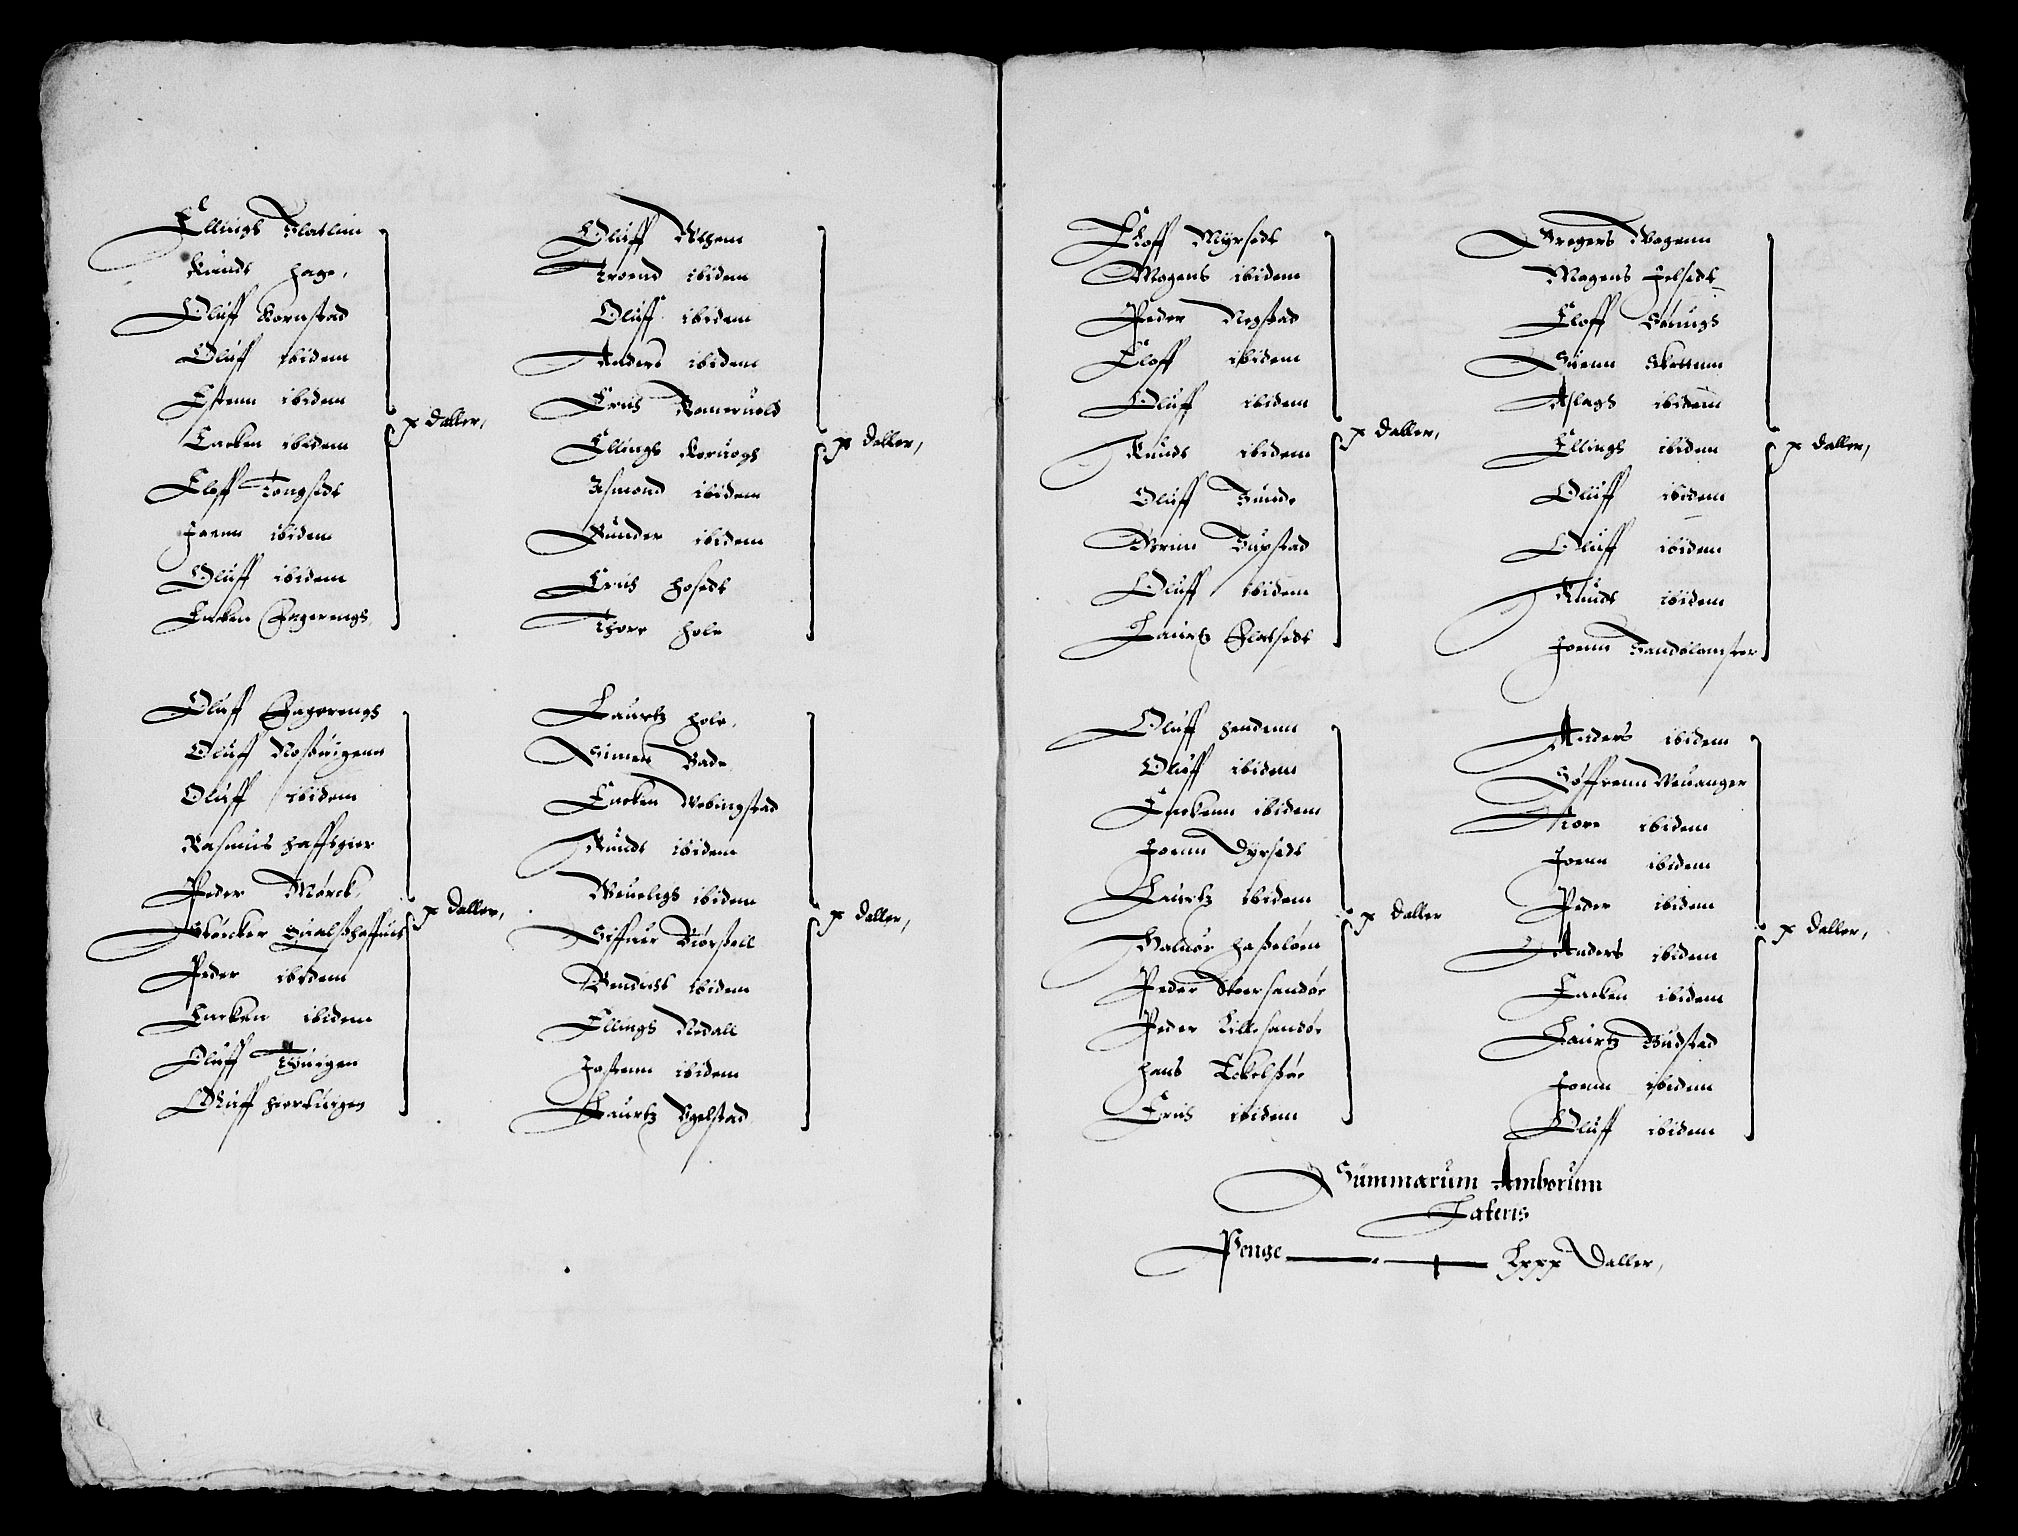 Ellings Slatlim
Knuds hage,
Oluff Kornstad
Oluff ibidem
Estenn ibidem
Lacken ibidem
Eloff Tongsedt
Joenn ibidem
Oluff ibidem
Encken Fagerengs
x daller,
Oluff
Troend ibidem
Oluff ibidem
Anders ibidem
Erius Romeruold
Ellings Koruogs
Asmond ibidem
Gunder ibidem
Erius Hosedt
Thore Hole
x daller,
Oluff Fagerengs
Oluff Nosbuigenn
Oluff ibidem
Rasmus
Peder Mørck
Størcker Qualsshaffnis
Peder ibidem
Encken ibidem
Oluff Wuigen
Oluff Hierkuigen
x daller,
Laurtz Hole,
Simen Bade
Encken Vebingstad
Knudt ibidem
Weueligs ibidem
Siffuer Biørstell
Bendicht ibidem
Ellings Nedall
Jostenn ibidem
Laurtz Vgelstad
x daller,
Eloff Myrsedt
Mogens ibidem
Peder Negstad
Eloff ibidem
Oluff ibidem
Knuds ibidem
Oluff Sunde
Grim Suxstad
Oluff ibidem
Laurtz Flatsedt
x daller,
Gregers Wogenn
Mogens Jelsedt
Eloff
Suenn Skottum
Aslags ibidem
Ellings ibidem
Oluff ibidem
Oluff ibidem
Knudt ibidem
Joenn Sandblomster
x daller,
Oluff Hendenn
Oluff ibidem
Enckenn ibidem
Joenn Dyrsedt
Laurtz ibidem
Haluor Hasseløen
Peder Storsandør
Peder Lillesandør
Hans Eckelsør
Erius ibidem
x daller
Anders ibidem
Søffrenn Weuanger
Tore ibidem
Joenn ibidem
Peder ibidem
Anders ibidem
Encken ibidem
Laurtz Budstad
Joenn ibidem
Oluff ibidem
x daller,
Summarum Amborum
Lateris
Penge Lxxx Daller,